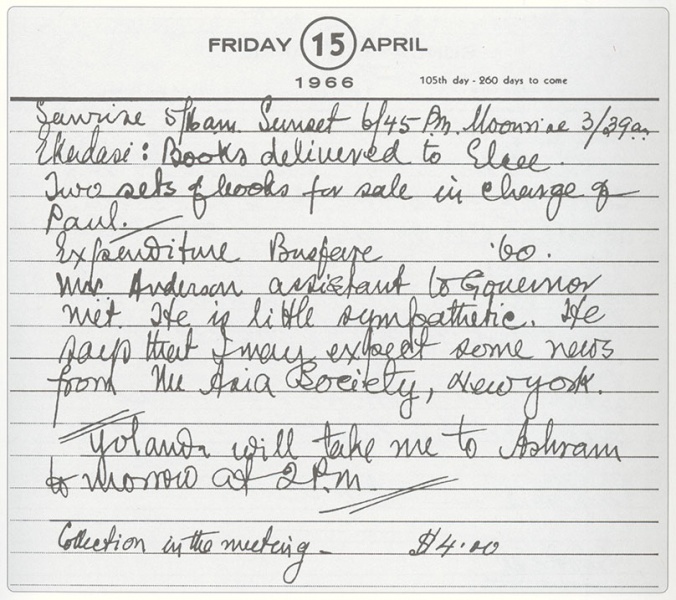 FRIDAY 15 APRIL
1966
105th day - 260 days to come
Sunrise 5/16am. Sunset 6/45 P.m. Moonrise 3/39am
Ekadasi: Books delivered to
Two sets of books for sale in charge of
Paul.
Expenditure Busfare .60.
Mr. Anderson assistant to Governor
met. He is little sympathetic. He
says that I may expect some news
from the Asia Society, New york.
Yolanda will take me to Ashram
to morrow at 2 P.m.
Collection in the meeting - $4.00